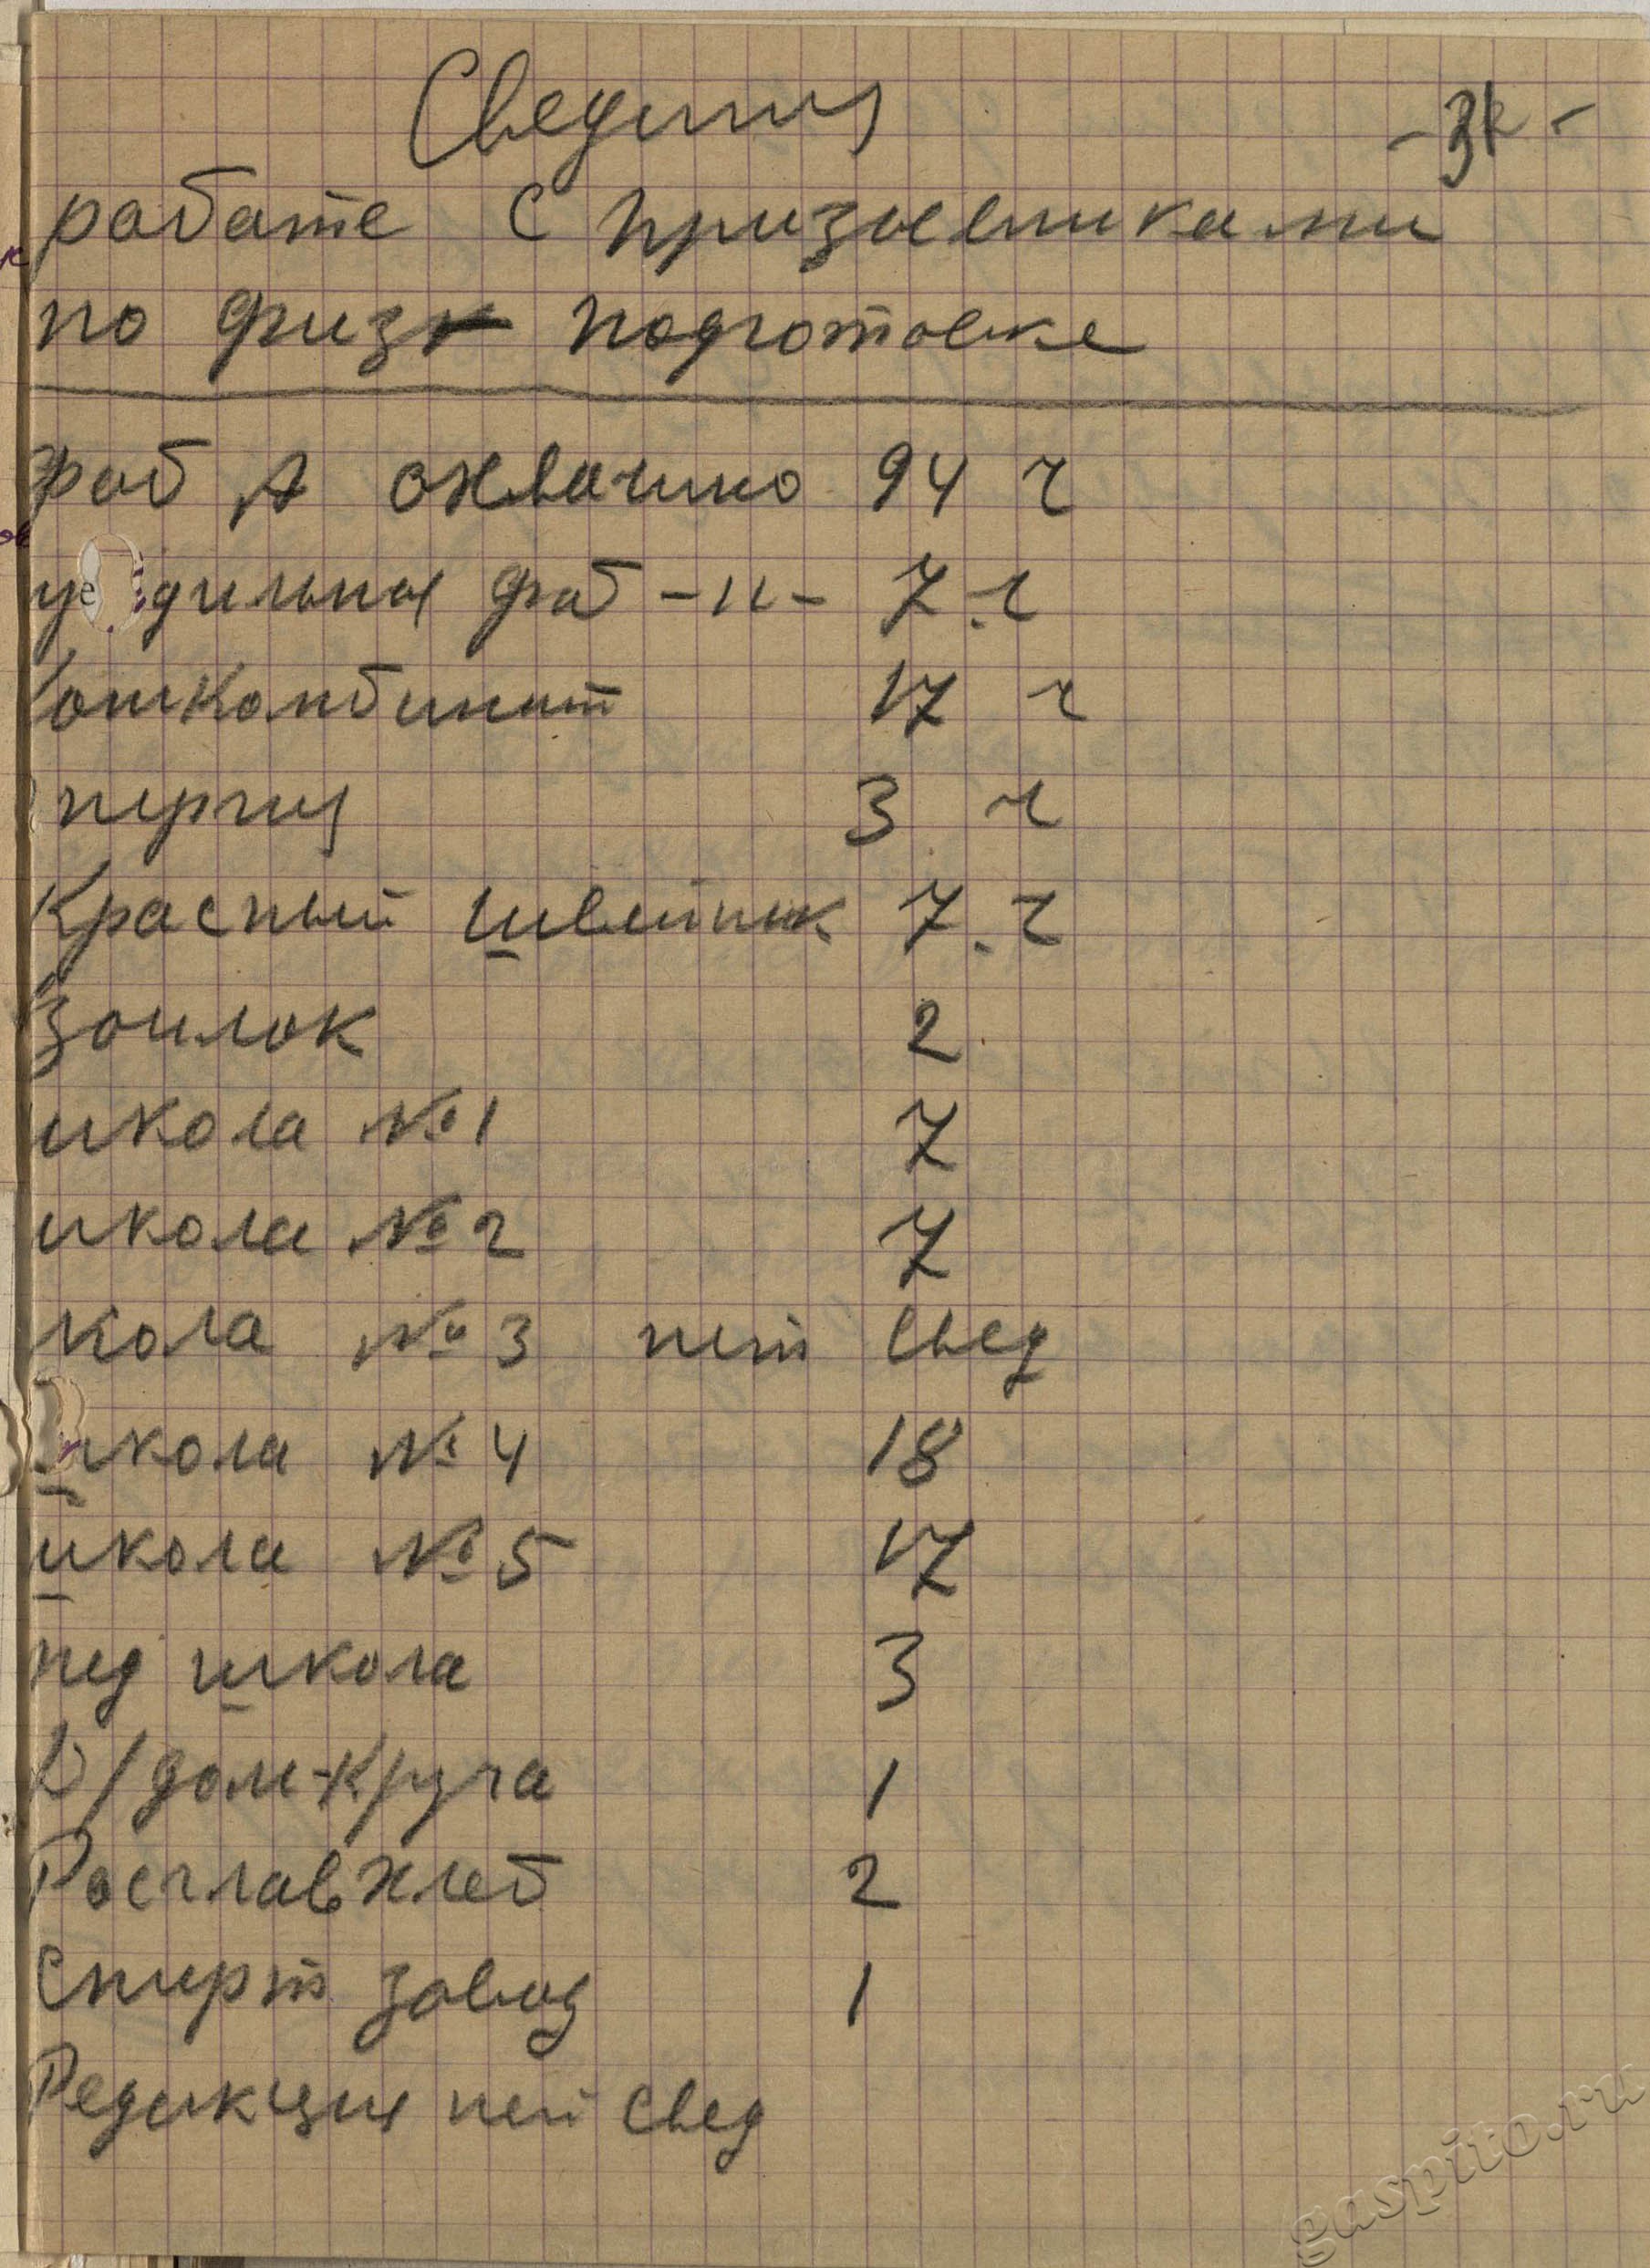 Сведения
работе с призывниками
по физ подготовке
фаб А охвачено 94 ч
дильная фаб -"- 7 ч
комбинат 17 ч
3 ч
Красный швейник 7 ч
2
школа №1 7
школа №2 7
кола №3 нет свед
школа №4 18
школа №5 17
пед школа 3
Д/дом-Круча 1
Росглавхлеб 2
Спирт завод 1
Редакция нет свед
gaspito.ru